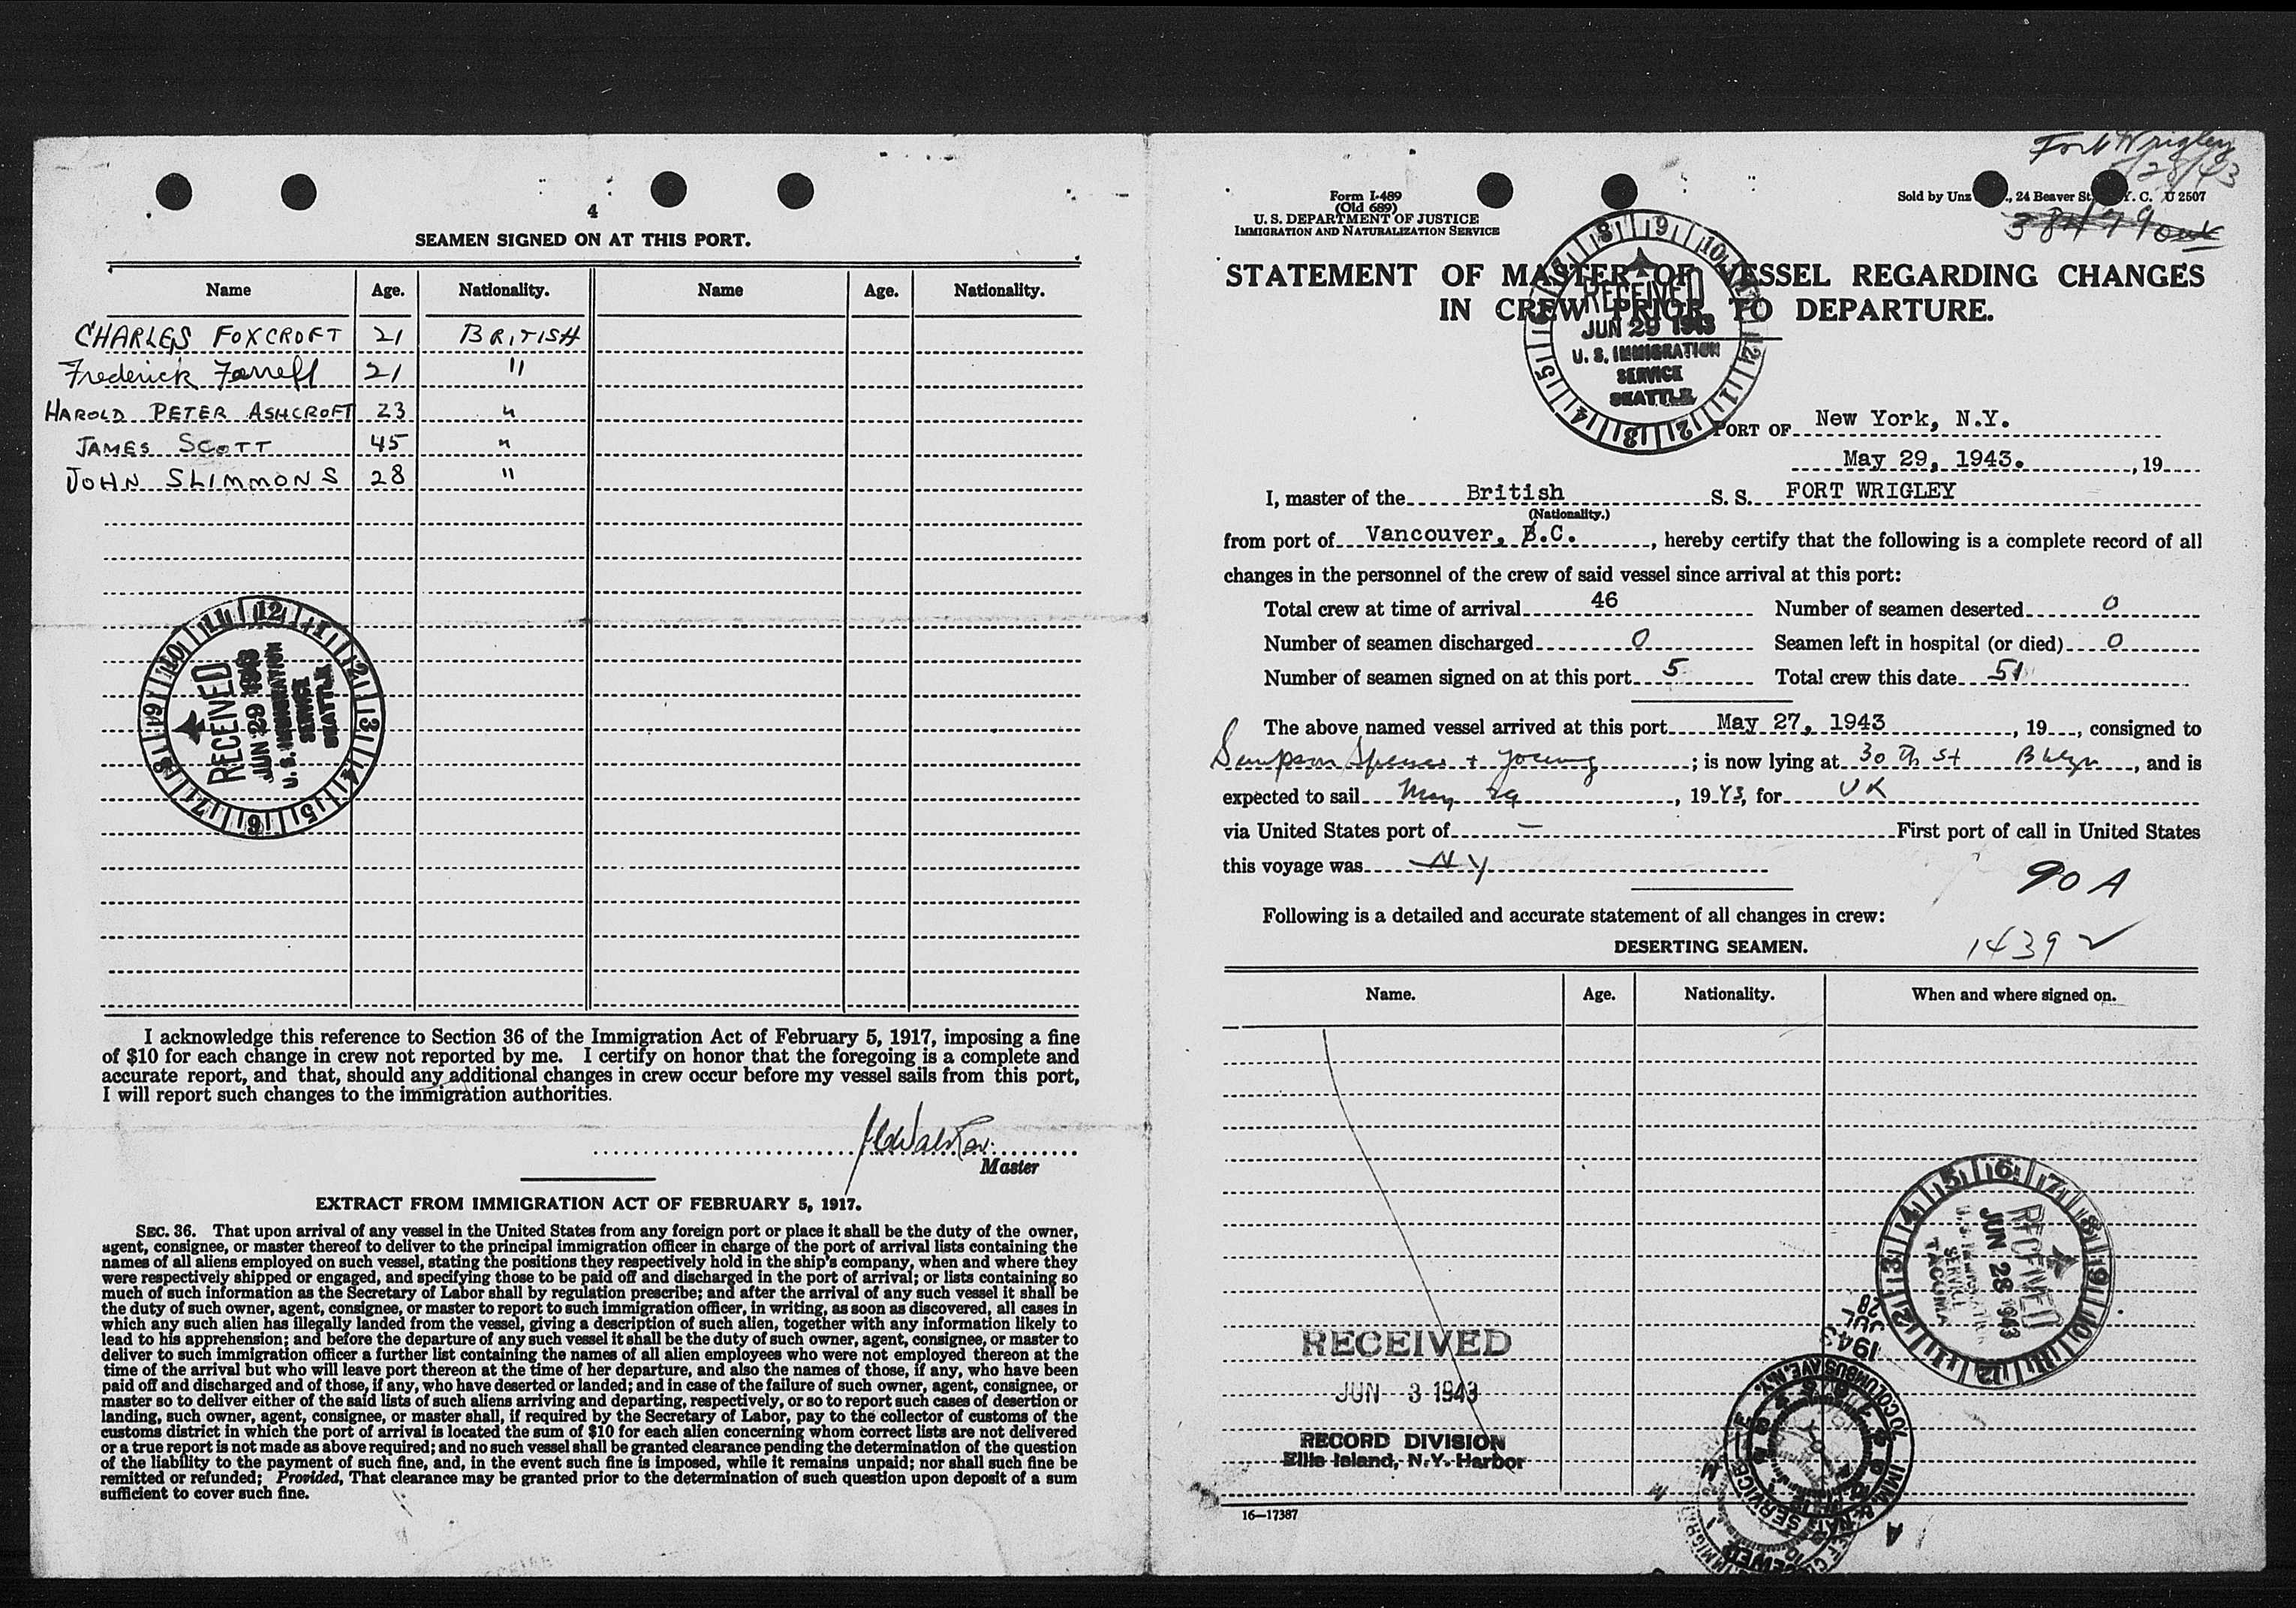 4
SEAMEN SIGNED ON AT THIS PORT.
Name Age. Nationality. Name Age. Nationality.
CHARLES FOXCROFT 21 BRITISH
Frederick Farrell 21 "
HAROLD PETER ASHCROFT 23 "
JAMES SCOTT 45 "
JOHN SLIMMONS 28 "
12 1 2 3 4 5 6 7 8 9 10 11
RECEIVED
JUN 29 1943
U. S. IMMIGRATION
SERVICE
SEATTLE
I acknowledge this reference to Section 36 of the Immigration Act of February 5, 1917, imposing a fine
of $10 for each change in crew not reported by me. I certify on honor that the foregoing is a complete and
accurate report, and that, should any additional changes in crew occur before my vessel sails from this port,
I will report such changes to the immigration authorities.
Walker
Master
EXTRACT FROM IMMIGRATION ACT OF FEBRUARY 5, 1917.
SEC. 36. That upon arrival of any vessel in the United States from any foreign port or place it shall be the duty of the owner,
agent, consignee, or master thereof to deliver to the principal immigration officer in charge of the port of arrival lists containing the
names of all aliens employed on such vessel, stating the positions they respectively hold in the ship's company, when and where they
were respectively shipped or engaged, and specifying those to be paid off and discharged in the port of arrival; or lists containing so
much of such information as the Secretary of Labor shall by regulation prescribe; and after the arrival of any such vessel it shall be
the duty of such owner, agent, consignee, or master to report to such immigration officer, in writing, as soon as discovered, all cases in
which any such alien has illegally landed from the vessel, giving a description of such alien, together with any information likely to
lead to his apprehension; and before the departure of any such vessel it shall be the duty of such owner, agent, consignee, or master to
deliver to such immigration officer a further list containing the names of all alien employees who were not employed thereon at the
time of the arrival but who will leave port thereon at the time of her departure, and also the names of those, if any, who have been
paid off and discharged and of those, if any, who have deserted or landed; and in case of the failure of such owner, agent, consignee, or
master so to deliver either of the said lists of such aliens arriving and departing, respectively, or so to report such cases of desertion or
landing, such owner, agent, consignee, or master shall, if required by the Secretary of Labor, pay to the collector of customs of the
customs district in which the port of arrival is located the sum of $10 for each alien concerning whom correct lists are not delivered
or a true report is not made as above required; and no such vessel shall be granted clearance pending the determination of the question
of the liability to the payment of such fine, and, in the event such fine is imposed, while it remains unpaid; nor shall such fine be
remitted or refunded; Provided, That clearance may be granted prior to the determination of such question upon deposit of a sum
sufficient to cover such fine.
Fort Wrigley
/28/43
Form I-489
(Old 689)
U. S. DEPARTMENT OF JUSTICE
IMMIGRATION AND NATURALIZATION SERVICE
Sold by Unz ., 24 Beaver St. Y. C. U 2507
STATEMENT OF MASTER OF VESSEL REGARDING CHANGES
IN CREW PRIOR TO DEPARTURE.
RECEIVED
JUN 29 1943
U. S. IMMIGRATION
SERVICE
SEATTLE
PORT OF New York, N.Y.
May 29, 1943. , 19
I, master of the British S. S. FORT WRIGLEY
(Nationality.)
from port of Vancouver, B.C. , hereby certify that the following is a complete record of all
changes in the personnel of the crew of said vessel since arrival at this port:
Total crew at time of arrival 46 Number of seamen deserted 0
Number of seamen discharged 0 Seamen left in hospital (or died) 0
Number of seamen signed on at this port 5 Total crew this date 51
The above named vessel arrived at this port May 27, 1943 , 19 , consigned to
Simpson Spence + Young ; is now lying at 30 Th St Bklyn , and is
expected to sail May 29 , 1943, for UK
via United States port of — First port of call in United States
this voyage was NY
90 A
Following is a detailed and accurate statement of all changes in crew:
DESERTING SEAMEN.
1439 ✓
Name. Age. Nationality. When and where signed on.
RECEIVED
JUN 28 1943
U. S. IMMIGRATION
SERVICE
TACOMA
JUL 28
1943
RECEIVED
JUN 3 1943
RECORD DIVISION
Ellis Island, N.Y. Harbor
70 COLUMBUS AVE. N.Y.
IMM. & NAT. SERVICE
16—17387